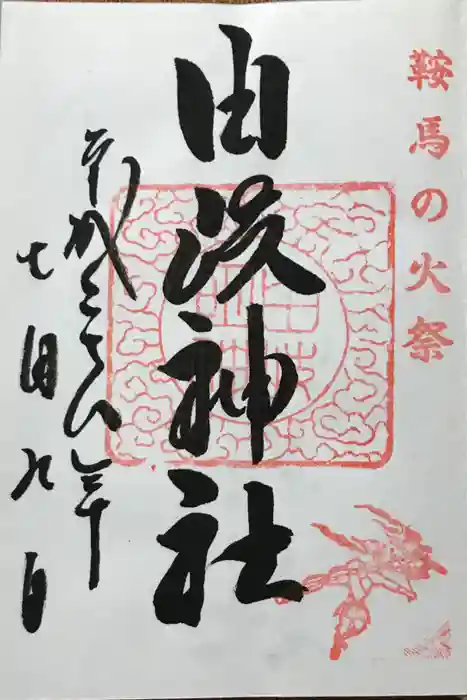 鞍馬の火祭
由岐神社
平成二十八年
七月九日